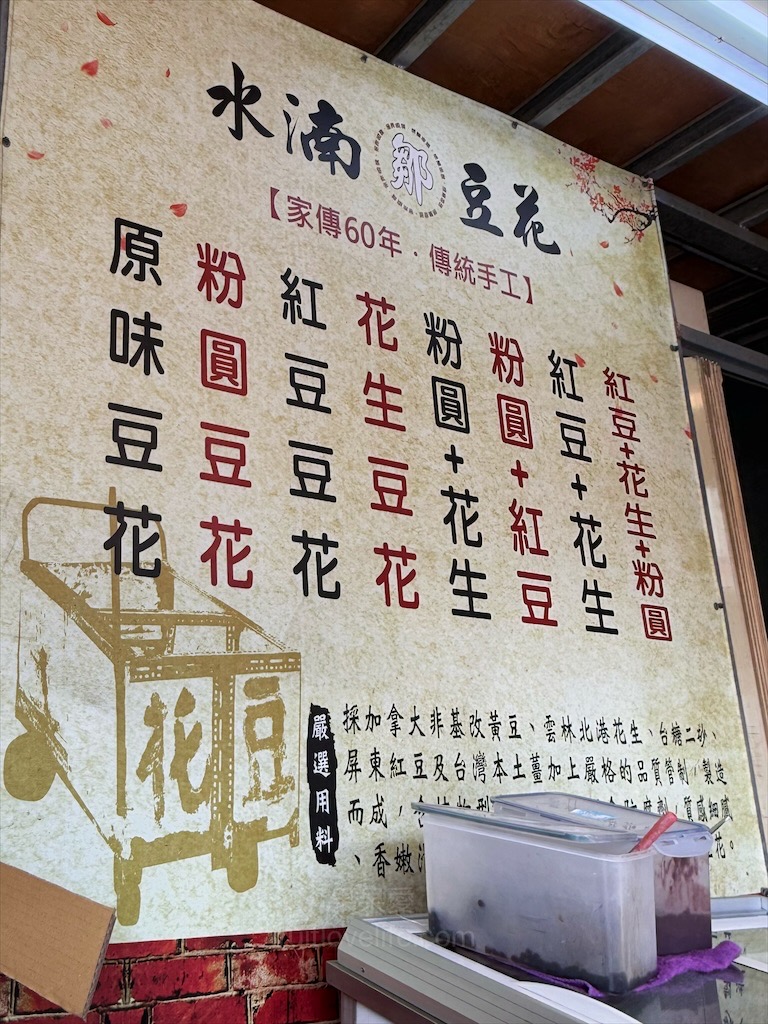 水湳 鄒 豆花
【家傳60年．傳統手工】
原味豆花
粉圓豆花
紅豆豆花
花生豆花
粉圓+花生
粉圓+紅豆
紅豆+花生
紅豆+花生+粉圓
花豆
嚴選用料
採加拿大非基改黃豆、雲林北港花生、台糖二砂、
屏東紅豆及台灣本土薑加上嚴格的品質管制，製造
而成，質感細膩
、香嫩花。